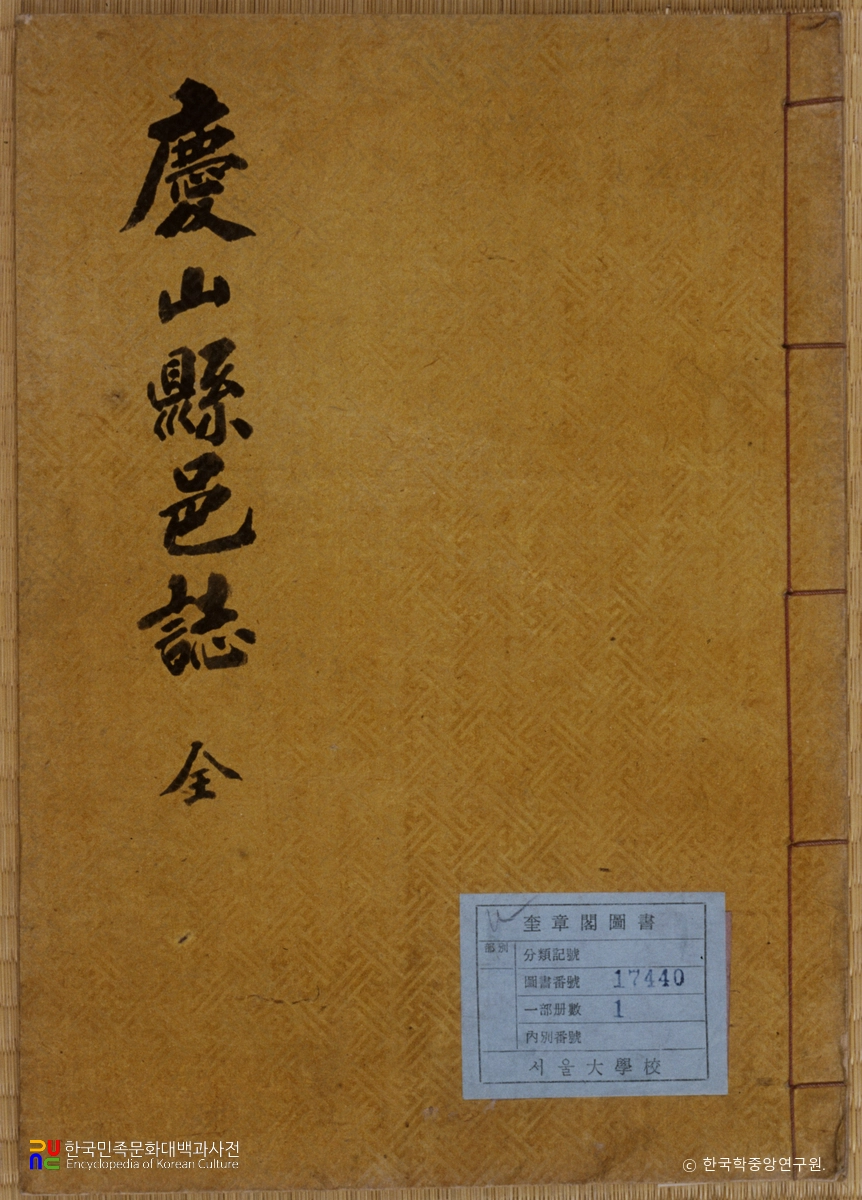 慶山縣邑誌 全
奎章閣圖書
部別
分類記號
圖書番號 17440
一部册數 1
內別番號
서울大學校
한국민족문화대백과사전
Encyclopedia of Korean Culture
ⓒ 한국학중앙연구원